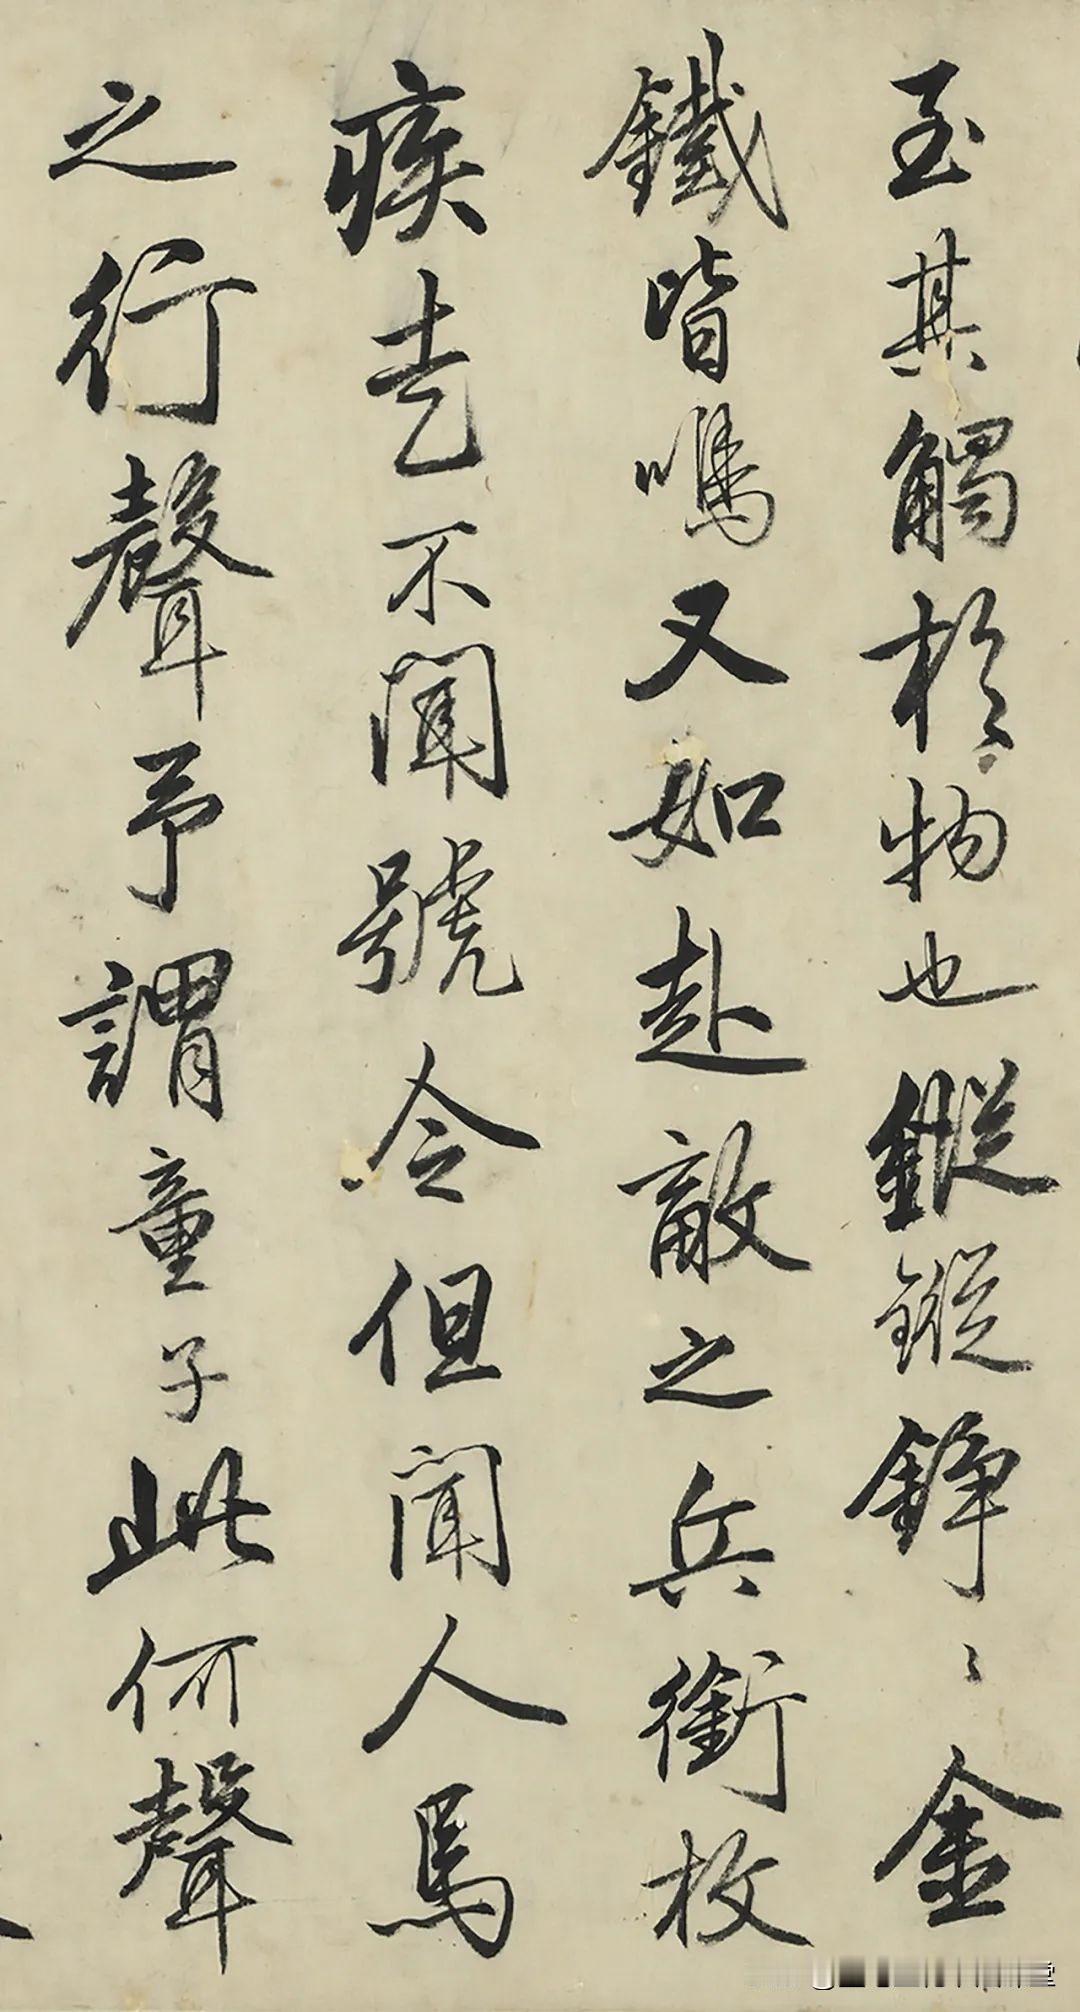 至其觸於物也鏦鏦錚〻金
鐵皆鳴又如赴敵之兵銜枚
疾走不聞號令但聞人馬
之行聲予謂童子此何聲